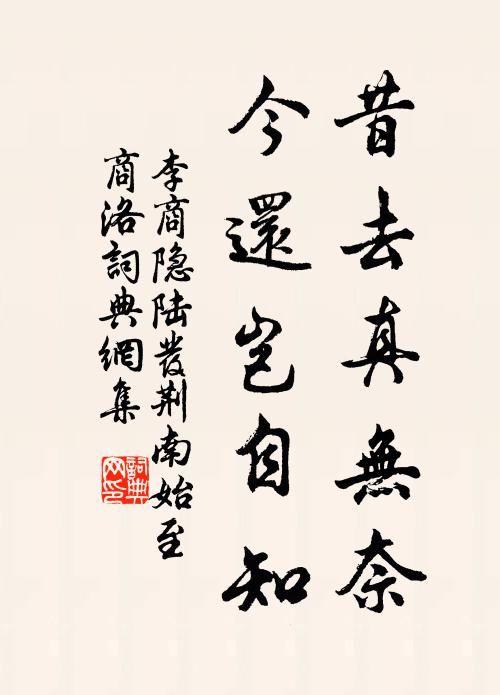 昔去真無奈
今還豈自知
李商隐陆發荆南始至
商洛詞典網集
詞典
网印